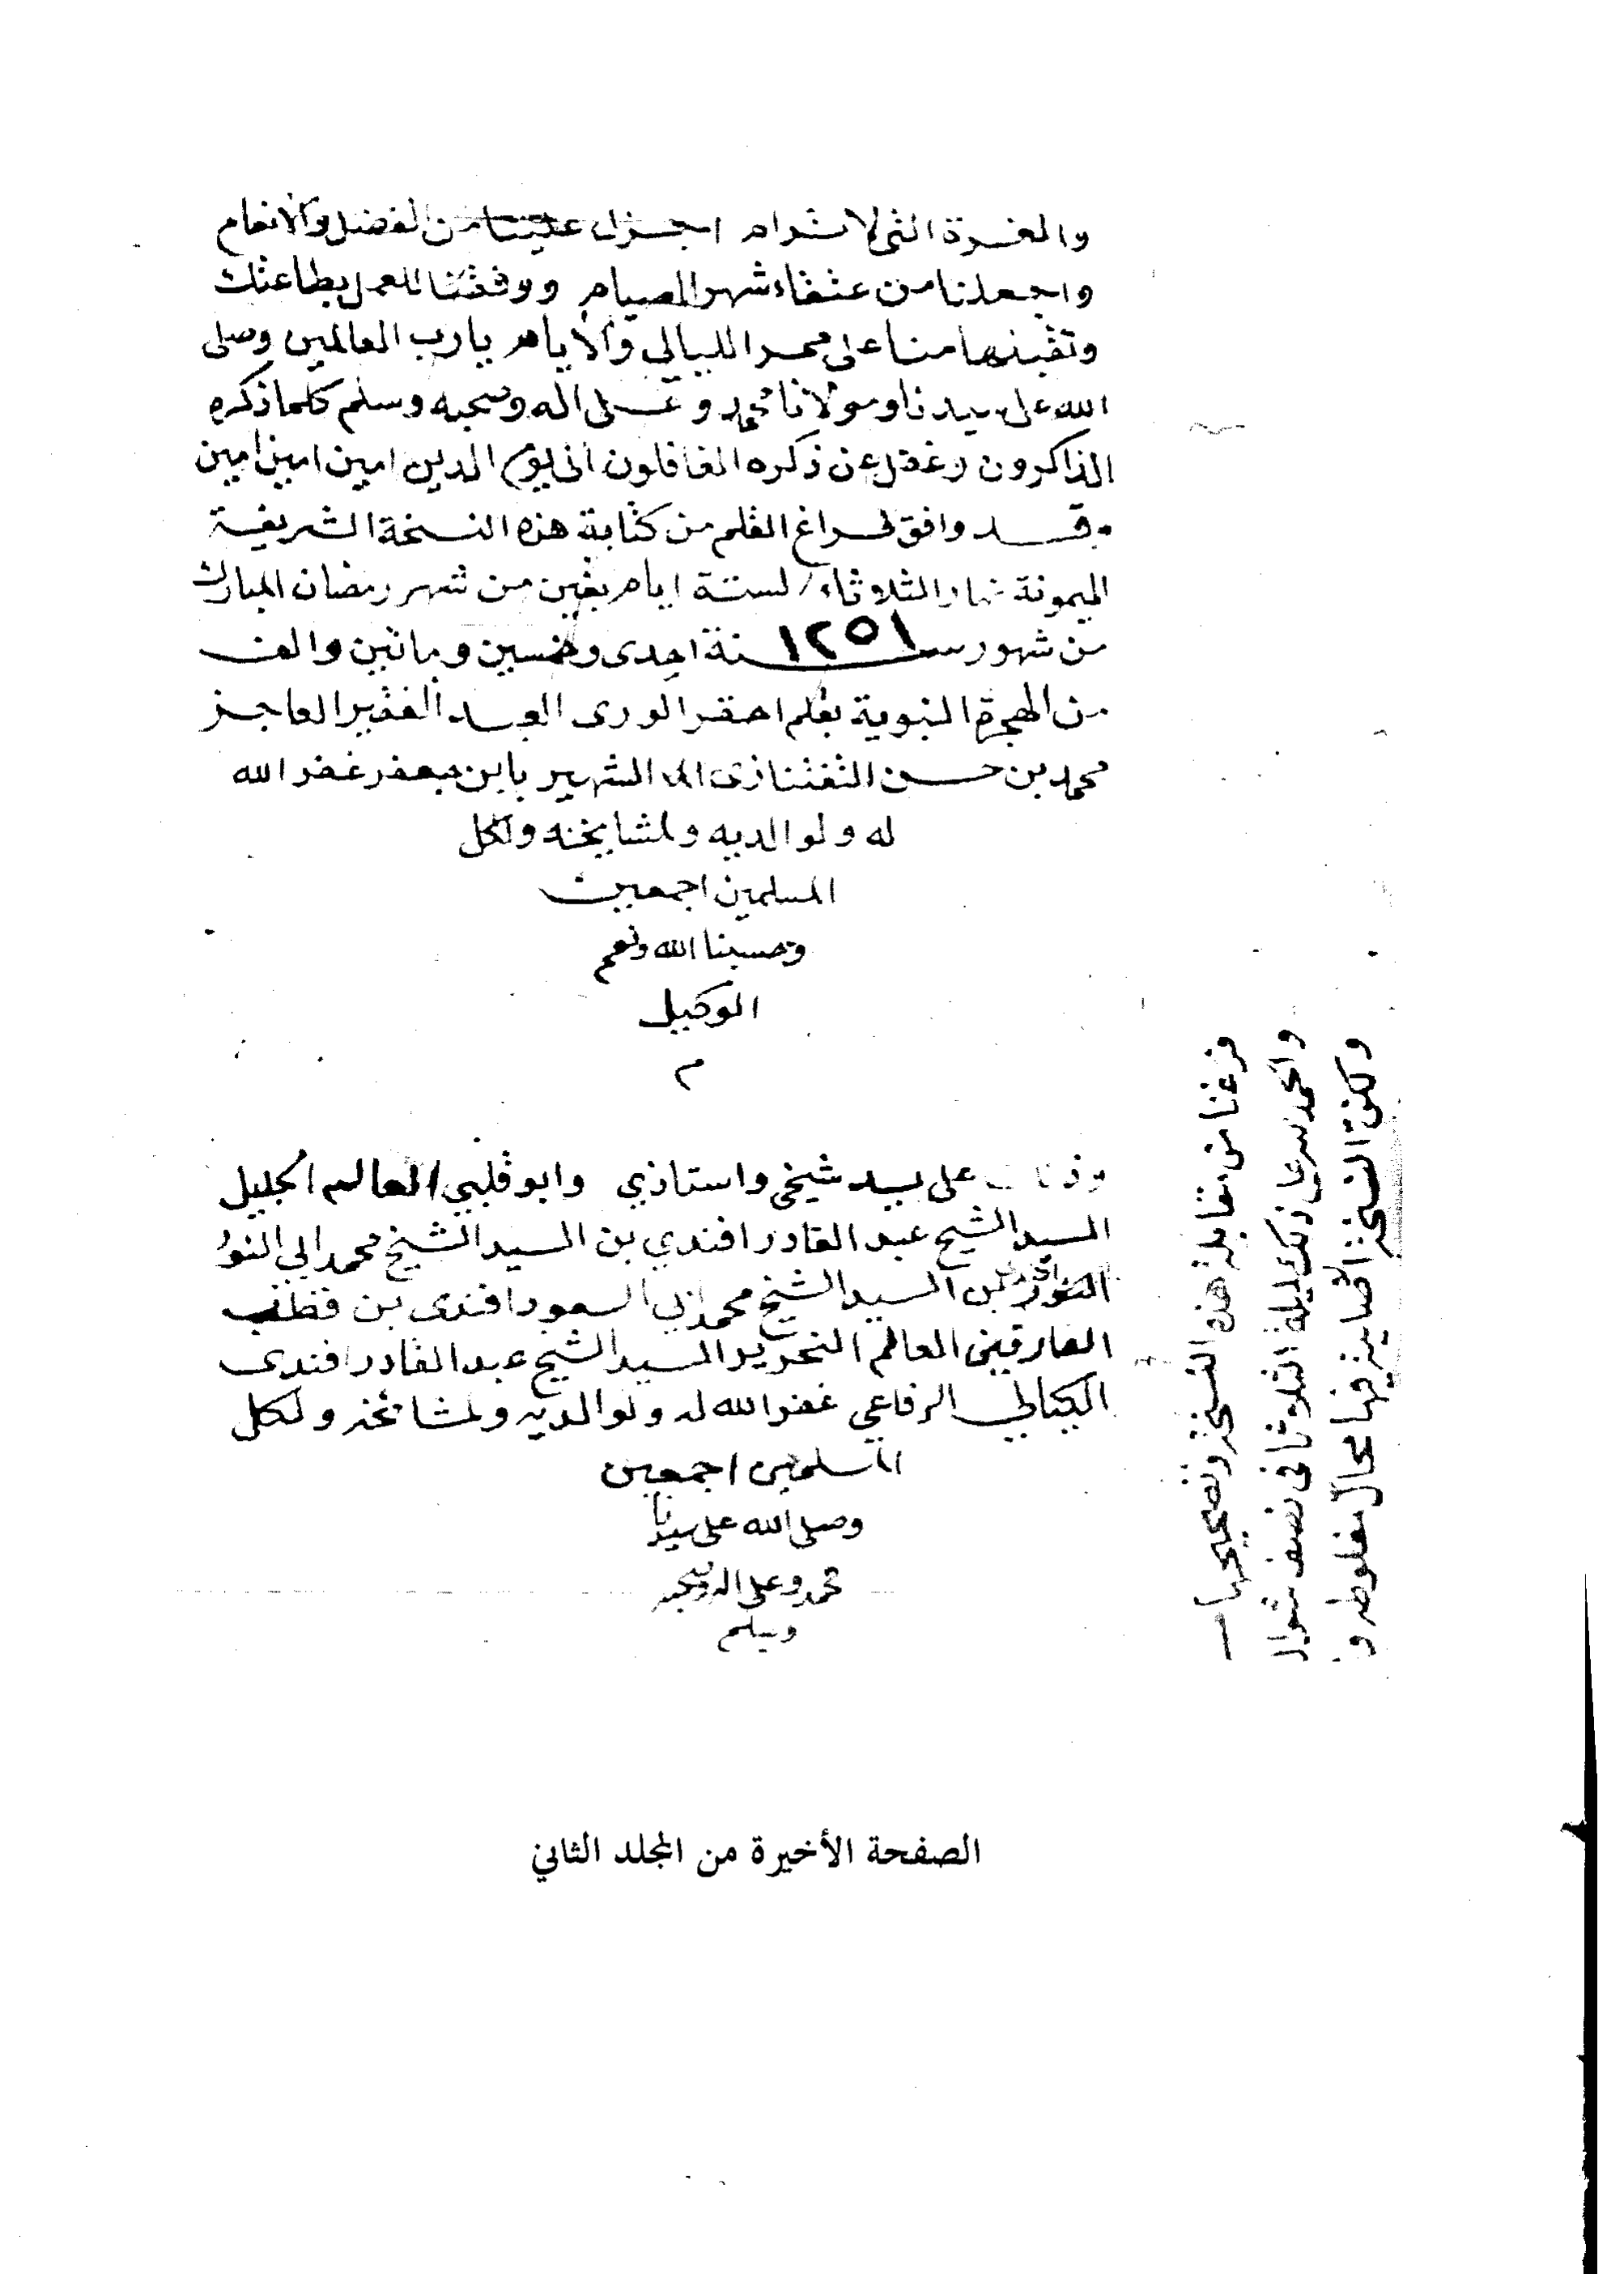 والعزة التي لا ترام اجزل علينا من الفضل والانعام
واجعلنا من عتقاء شهر الصيام ووفقنا للعمل بطاعتك
وتقبلها منا على ممر الليالي والأيام يا رب العالمين وصلى
الله على سيدنا ومولانا محمد وعلى اله وصحبه وسلم كلما ذكره
الذاكرون وغفل عن ذكره الغافلون الى يوم الدين امين امين امين
وقد وافق فراغ القلم من كتابة هذه النسخة الشريفة
الميمونة نهار الثلاثاء لستة ايام بقين من شهر رمضان المبارك
من شهور سنة ١٢٥١ احدى وخمسين وماتين والف
من الهجرة النبوية بقلم احقر الورى العبد الفقير العاجز
محمد بن حسن التفتنازى الشهير بابن جعفر غفر الله
له ولوالديه ولمشايخه ولكل
المسلمين اجمعين
وحسبنا الله ونعم
الوكيل
م
على يد شيخي واستاذي وابو قلبي العالم الجليل
السيد الشيخ عبد القادر افندي بن السيد الشيخ محمد ابي النور
بن السيد الشيخ محمد ابي السعود افندى بن قطب
العارفين العالم النحرير السيد الشيخ عبد القادر افندى
الكيالي الرفاعي غفر الله له ولوالديه ولمشائخه ولكل
المسلمين اجمعين
وصلى الله على سيدنا
محمد وعلى اله وصحبه
وسلم
فرغنا من مقابلة هذه النسخة وتصحيحها
والحمد لله على ذلك ليلة الثلاثا في نصف شوال
ولكن النسخة الاصلية فيها محال مغلوطة
الصفحة الأخيرة من المجلد الثاني